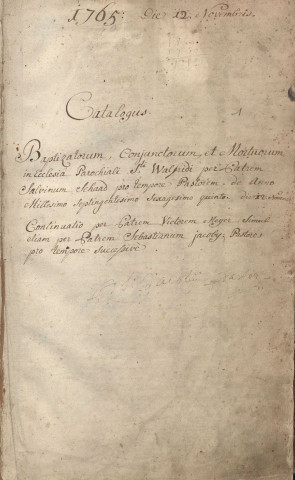 1765: Die 12 Novembris.
Catalogus 1
Baptizatorum, Conjunctorum, et Mortuorum
in Ecclesia Parochiali Sti Walfridi per Patrem
Salvinum Schaad pro tempore Pastorem, de Anno
Millesimo Septingentesimo Sexagesimo quinto. die 12
Continuatio per Patrem Victorem Meyer Simul
etiam per Patrem Sebastianum jacoby Pastores
pro tempore successive